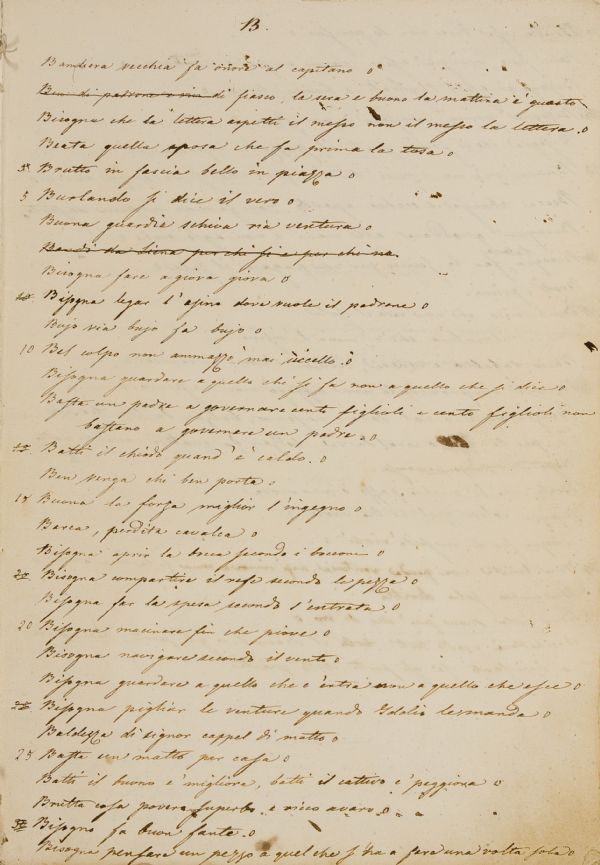 B.
Bandiera vecchia fa onore al capitano o
Ben di padrone e vin di fiasco, la sera e buono la mattina è guasto
Bisogna che la lettera aspetti il messo non il messo la lettera. o
Beata quella sposa che fa prima la tosa o
5 Brutto in fascia bello in piazza o
5 Burlando si dice il vero o
Buona guardia schiva ria ventura o
da Siena per chi si e per chi
Bisogna fare a giova giova o
10 Bisogna legar l'asino dove vuole il padrone o
Bujo via bujo fa bujo o
10 Bel colpo non ammazzò mai uccello. o
Bisogna guardare a quello che si fa non a quello che si dice o
Basta un padre a governare cento figlioli e cento figlioli non
bastano a governare un padre. o
15 Batti il chiodo quand'è caldo. o
Ben venga chi ben porta o
15 Buona la forza miglior l'ingegno o
Barca, perdita cavalca o
Bisogna aprir la bocca secondo i bocconi o
20 Bisogna compartire il refe secondo le pezze o
Bisogna far la spesa secondo l'entrata o
20 Bisogna macinare fin che piove o
Bisogna navigare secondo il vento o
Bisogna guardare a quello che c'entra non a quello che esce o
25 Bisogna pigliar le venture quando Iddio le manda o
Baldezza di signor cappel di matto o
25 Basta un matto per casa o
Batti il buono e' migliora, batti il cattivo e' peggiora o
Brutta cosa povero superbo e ricco avaro o
30 Bisogno fa buon fante. o
Bisogna pensare un pezzo a quel che s'ha a fare una volta sola o